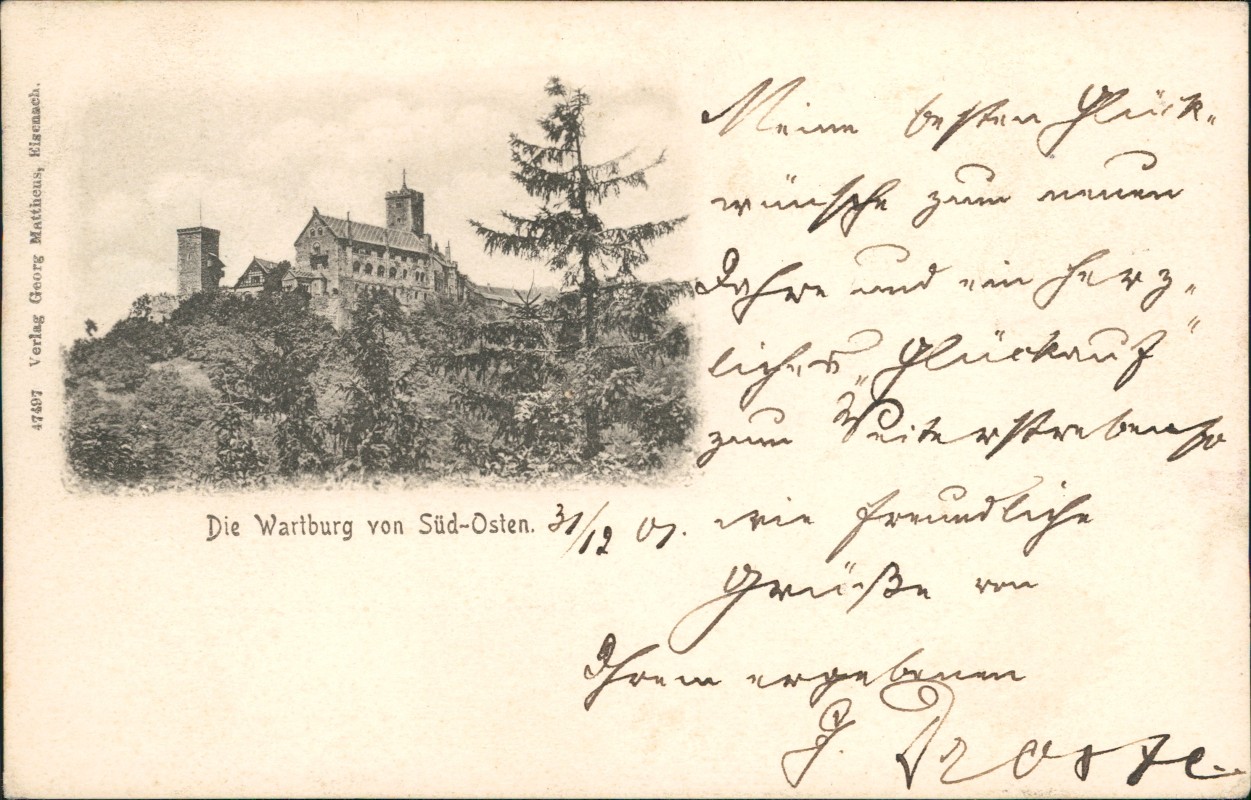 47497 Verlag Georg Mattheus, Eisenach.
Meine besten Glück-
wünsche zum neuen
Jahre und ein herz-
liches „Glückauf“
zum Weiterstreben so
wie freundliche
Grüße von
Ihrem ergebenen
Die Wartburg von Süd-Osten. 31/12 01.